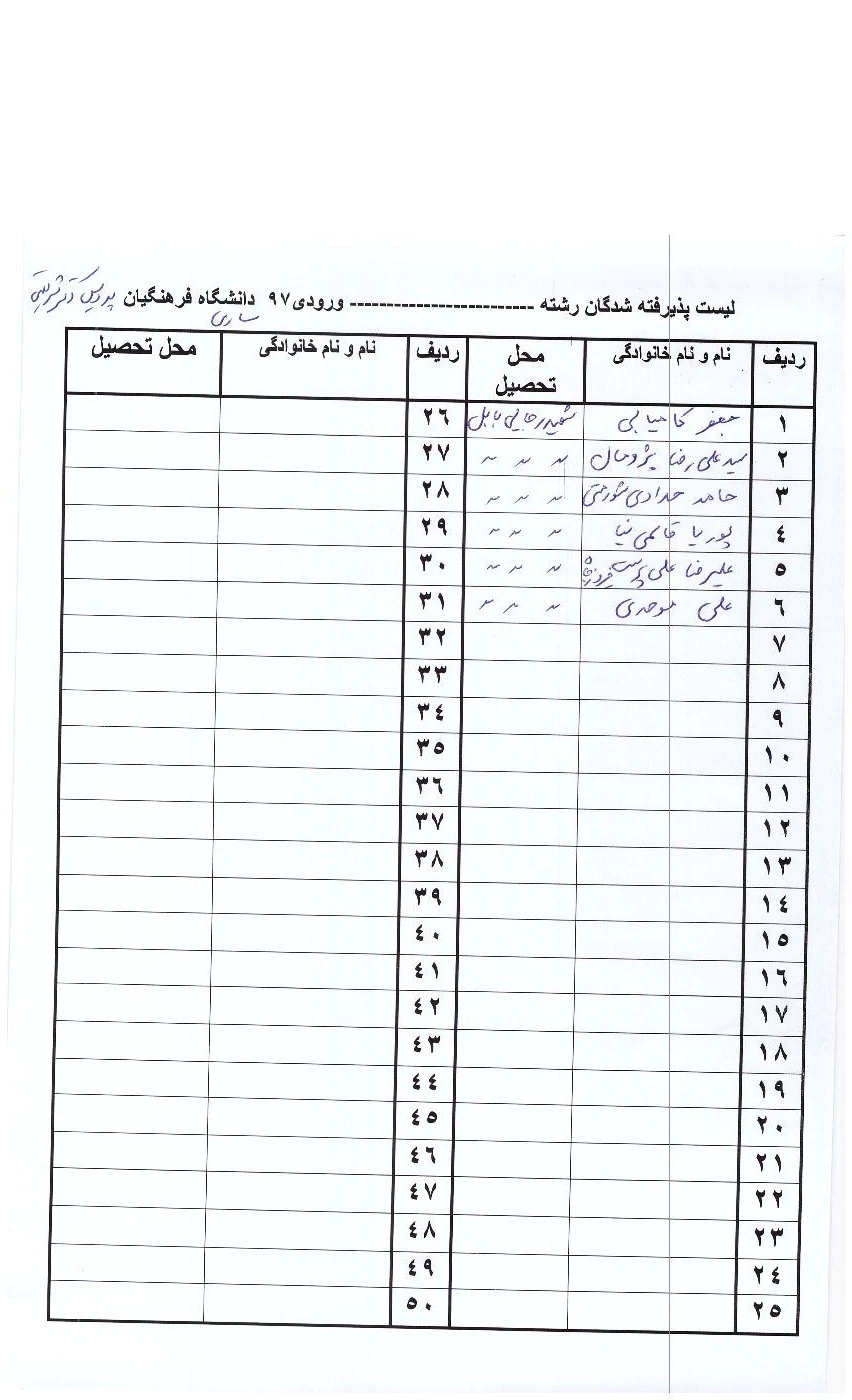 لیست پذیرفته شدگان رشته ------------------------- ورودی ۹۷ دانشگاه فرهنگیان پردیس دکتر شریعتی
ساری
ردیف نام و نام خانوادگی محل تحصیل ردیف نام و نام خانوادگی محل تحصیل
۱ جعفر کامیابی شهید رجایی بابل ۲۶
۲ سید علی رضا پژومال " " " ۲۷
۳ حامد حدادی شورمستی " " " ۲۸
۴ پوریا قائمی نیا " " " ۲۹
۵ علیرضا علی پرست " " " ۳۰
۶ علی موحدی " " " ۳۱
۷ ۳۲
۸ ۳۳
۹ ۳٤
۱۰ ۳٥
۱۱ ۳٦
۱۲ ۳۷
۱۳ ۳۸
۱٤ ۳۹
۱٥ ٤۰
۱٦ ٤۱
۱۷ ٤۲
۱۸ ٤۳
۱۹ ٤٤
۲۰ ٤٥
۲۱ ٤٦
۲۲ ٤۷
۲۳ ٤۸
۲٤ ٤۹
۲٥ ٥۰